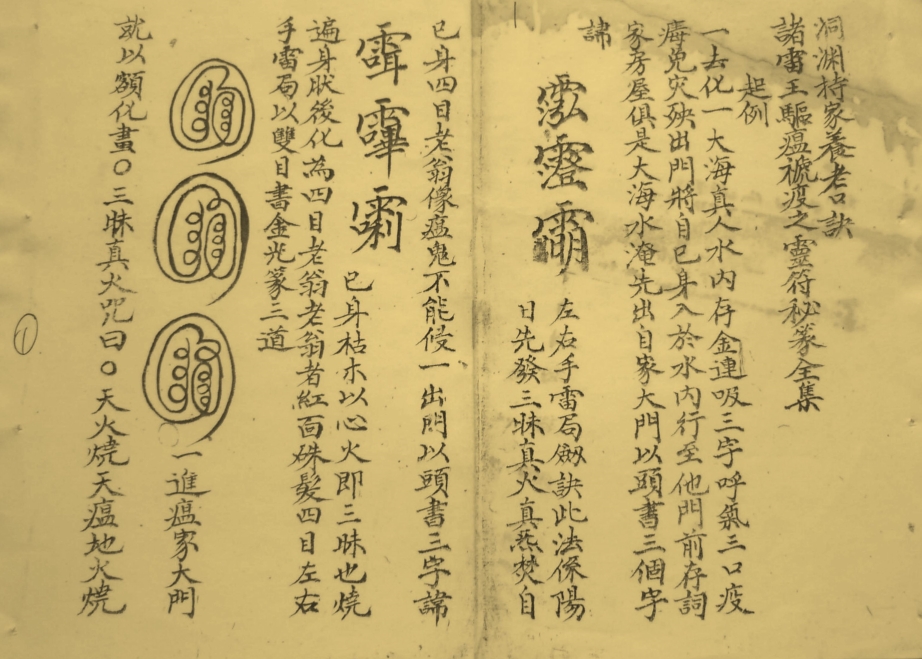 洞渊持家養老口訣
諸雷王驅瘟䄏疫之靈符秘篆全集
起例
一去化一大海真人水內存金連吸三字呼氣三口疫
癦免灾殃出門將自己身入於水內行至他門前存詞
家房屋俱是大海水淹先出自家大門以頭書三個字
諱
泓霻
左右手雷局劔訣此法係陽
日先發三昧真火真炁焚自
己身四目老翁像瘟鬼不能侵一出門以頭書三字諱
己身枯木以心火即三昧也燒
遍身狀後化為四目老翁老翁者紅面硃髮四目左右
手雷局以雙目書金光篆三道
一進瘟家大門
就以額化畫○三昧真火咒曰○天火燒天瘟地火燒
①